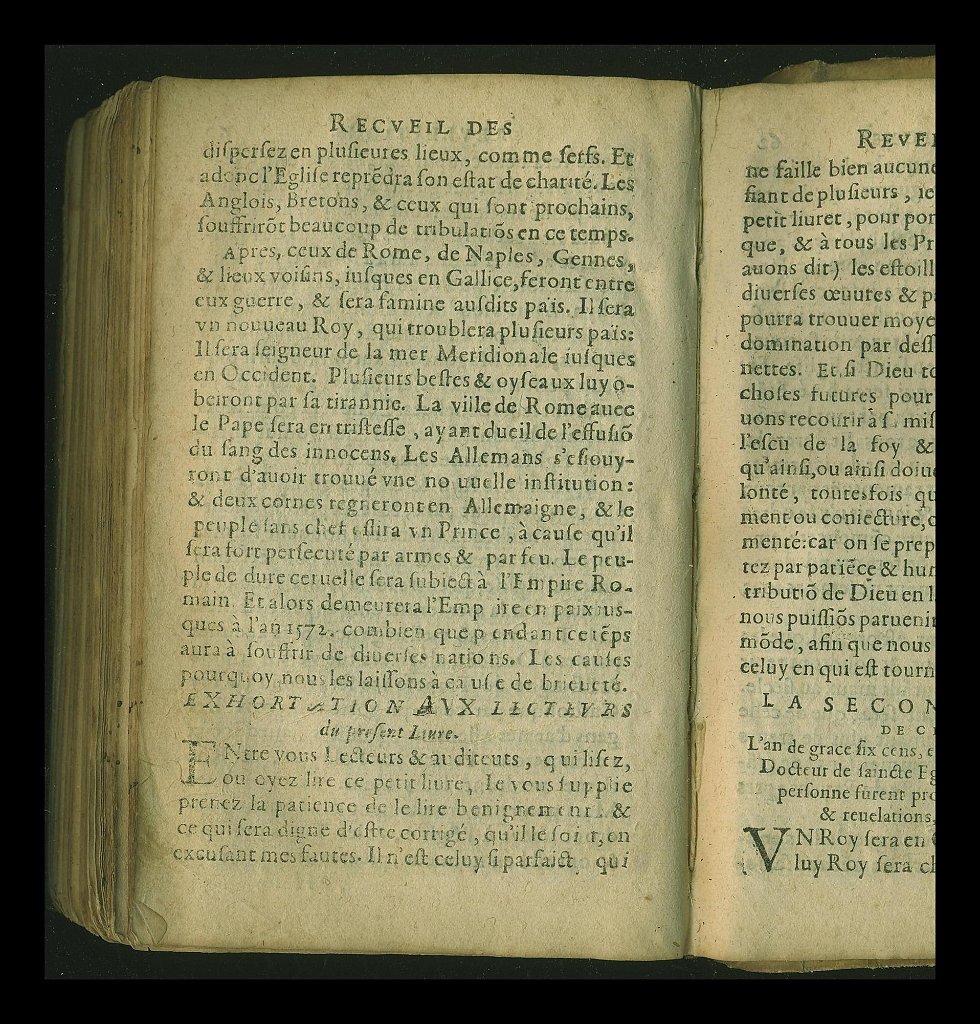 RECVEIL DES
diſperſez en pluſieures lieux, comme ſerfs. Et
adonc l'Egliſe reprẽdra ſon eſtat de charité. Les
Anglois, Bretons, & ceux qui ſont prochains,
ſouffrirõt beaucoup de tribulatiõs en ce temps.
Apres, ceux de Rome, de Naples, Gennes,
& lieux voiſins, iuſques en Gallice, feront entre
eux guerre, & ſera famine auſdits païs. Il ſera
vn nouueau Roy, qui troublera pluſieurs païs:
Il ſera ſeigneur de la mer Meridionale iuſques
en Occident. Pluſieurs beſtes & oyſeaux luy o-
beiront par ſa tirannie. La ville de Rome auec
le Pape ſera en triſteſſe, ayant dueil de l'effuſiõ
du ſang des innocens. Les Allemans s'eſiouy-
ront d'auoir trouué vne nouuelle inſtitution:
& deux cornes regneront en Allemaigne, & le
peuple ſans chef eſlira vn Prince, à cauſe qu'il
ſera fort perſecuté par armes & par feu. Le peu-
ple de dure ceruelle ſera ſubiect à l'Empire Ro-
main. Et alors demeurera l'Empire en paix iuſ-
ques à l'an 1572. combien que pendant ce tẽps
aura à ſouffrir de diuerſes nations. Les cauſes
pourquoy, nous les laiſſons à cauſe de brieueté.
EXHORTATION AVX LECTEVRS
du preſent Liure.
ENtre vous Lecteurs & auditeurs, qui liſez,
ou oyez lire ce petit liure, Ie vous ſupplie
prenez la patience de le lire benignement, &
ce qui ſera digne d'eſtre corrigé, qu'il le ſoit, en
excuſant mes fautes. Il n'eſt celuy ſi parfaict, qui
REVE
ne faille bien aucune
fiant de pluſieurs, ie
petit liuret, pour por
que, & à tous les Pr
auons dit) les eſtoill
diuerſes œuures & p
pourra trouuer moye
domination par deſſ
nettes. Et ſi Dieu to
choſes futures pour
uons recourir à ſa miſ
l'eſcu de la foy &
qu'ainſi, ou ainſi doiue
lonté, toutesfois qu
ment ou coniecture, c
menté: car on ſe prep
tez par patiẽce & hum
tributiõ de Dieu en l
nous puiſſiõs paruenir
mõde, afin que nous
celuy en qui eſt tourn
LA SECON
DE C
L'an de grace ſix cens, e
Docteur de ſaincte Eg
perſonne furent pro
& reuelations,
VN Roy ſera en
luy Roy ſera ch